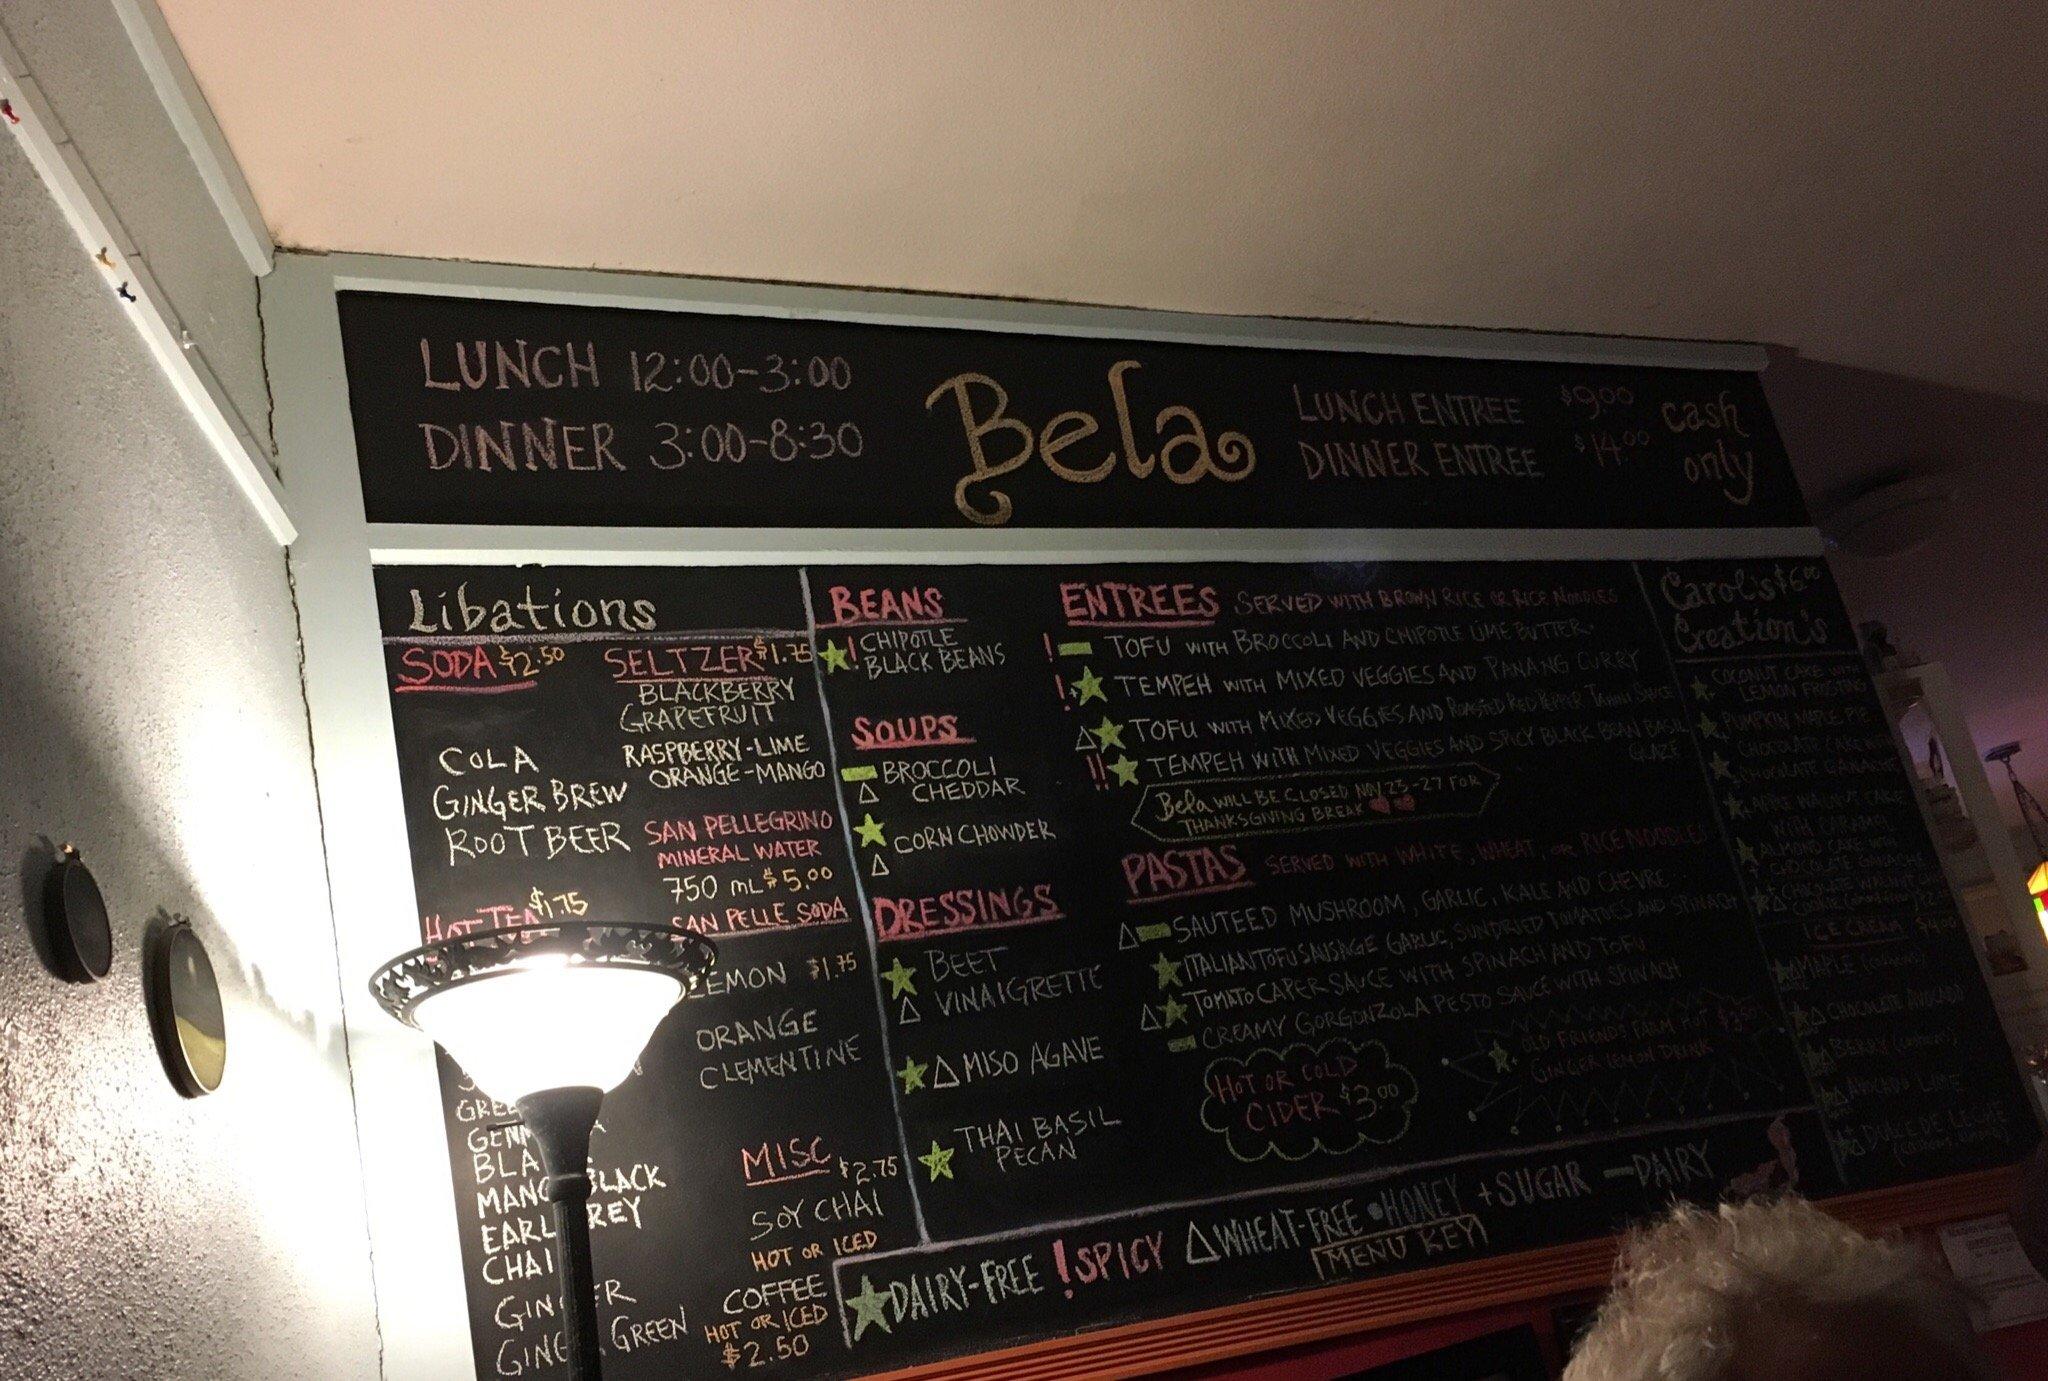 LUNCH 12:00-3:00
DINNER 3:00-8:30
Bela
LUNCH ENTREE $9.00
DINNER ENTREE $14.00
cash
only
Libations
SODA $2.50
COLA
GINGER BREW
ROOT BEER
SELTZER $1.75
BLACKBERRY
GRAPEFRUIT
RASPBERRY-LIME
ORANGE-MANGO
SAN PELLEGRINO
MINERAL WATER
750 mL $5.00
SAN PELLE SODA
LEMON $1.75
ORANGE
CLEMENTINE
HOT TEA $1.75
EARL GREY
CHAI
GINGER
GREEN
MISC
$2.75
SOY CHAI
HOT OR ICED
COFFEE
HOT OR ICED
$2.50
BEANS
! CHIPOTLE
BLACK BEANS
SOUPS
BROCCOLI
CHEDDAR
CORN CHOWDER
DRESSINGS
BEET
VINAIGRETTE
MISO AGAVE
THAI BASIL
PECAN
ENTREES SERVED WITH BROWN RICE OR RICE NOODLES
! TOFU WITH BROCCOLI AND CHIPOTLE LIME BUTTER
! TEMPEH WITH MIXED VEGGIES AND PANANG CURRY
TOFU WITH MIXED VEGGIES AND ROASTED RED PEPPER TAHINI SAUCE
!! TEMPEH WITH MIXED VEGGIES AND SPICY BLACK BEAN BASIL
GLAZE
Bela WILL BE CLOSED NOV 23-27 FOR
THANKSGIVING BREAK
PASTAS SERVED WITH WHITE, WHEAT, OR RICE NOODLES
SAUTEED MUSHROOM, GARLIC, KALE AND CHEVRE
ITALIAN TOFU SAUSAGE GARLIC, SUNDRIED TOMATOES AND SPINACH
TOMATO CAPER SAUCE WITH SPINACH AND TOFU
CREAMY GORGONZOLA PESTO SAUCE WITH SPINACH
HOT OR COLD
CIDER $3.00
OLD FRIENDS FARM HOT $3.50
GINGER LEMON DRINK
Carol's $6.00
Creation's
COCONUT CAKE WITH
LEMON FROSTING
PUMPKIN MAPLE PIE
CHOCOLATE CAKE WITH
CHOCOLATE GANACHE
APPLE WALNUT CAKE
WITH CARAMEL
ALMOND CAKE WITH
CHOCOLATE GANACHE
CHOCOLATE WALNUT
COOKIE
ICE CREAM $4.00
MAPLE (cashew)
CHOCOLATE AVOCADO
BERRY (cashew)
AVOCADO LIME
DULCE DE LECHE
DAIRY-FREE ! SPICY △ WHEAT-FREE • HONEY + SUGAR — DAIRY
MENU KEY